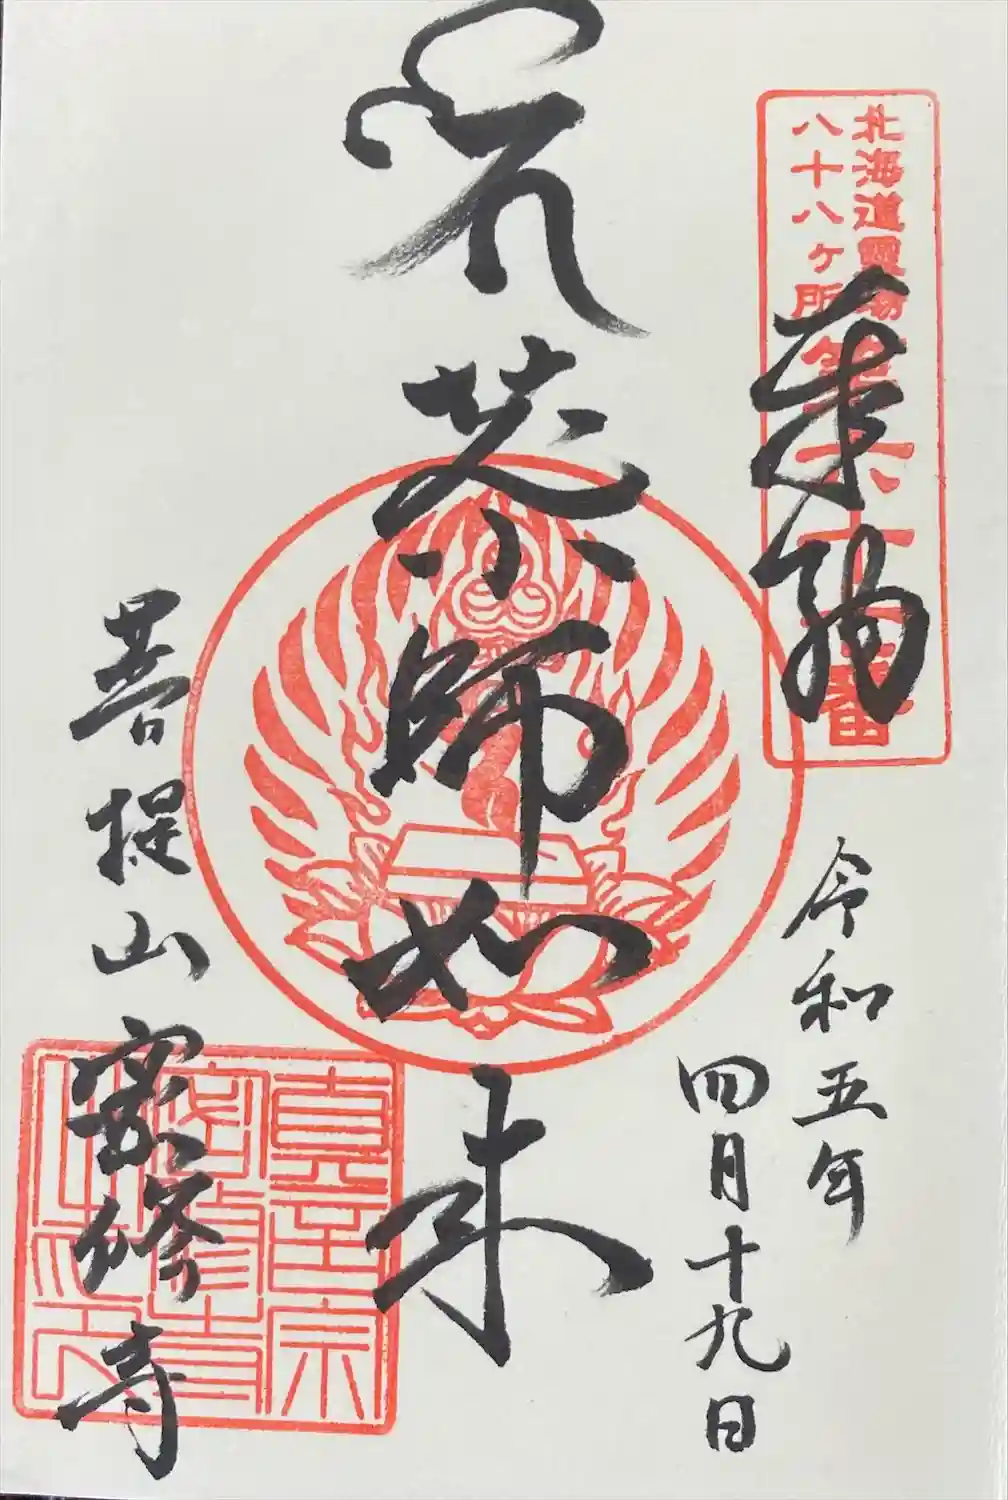 北海道霊場
八十八ヶ所
奉拝
令和五年
四月十九日
薬師如来
菩提山密修寺
真言宗
密修寺